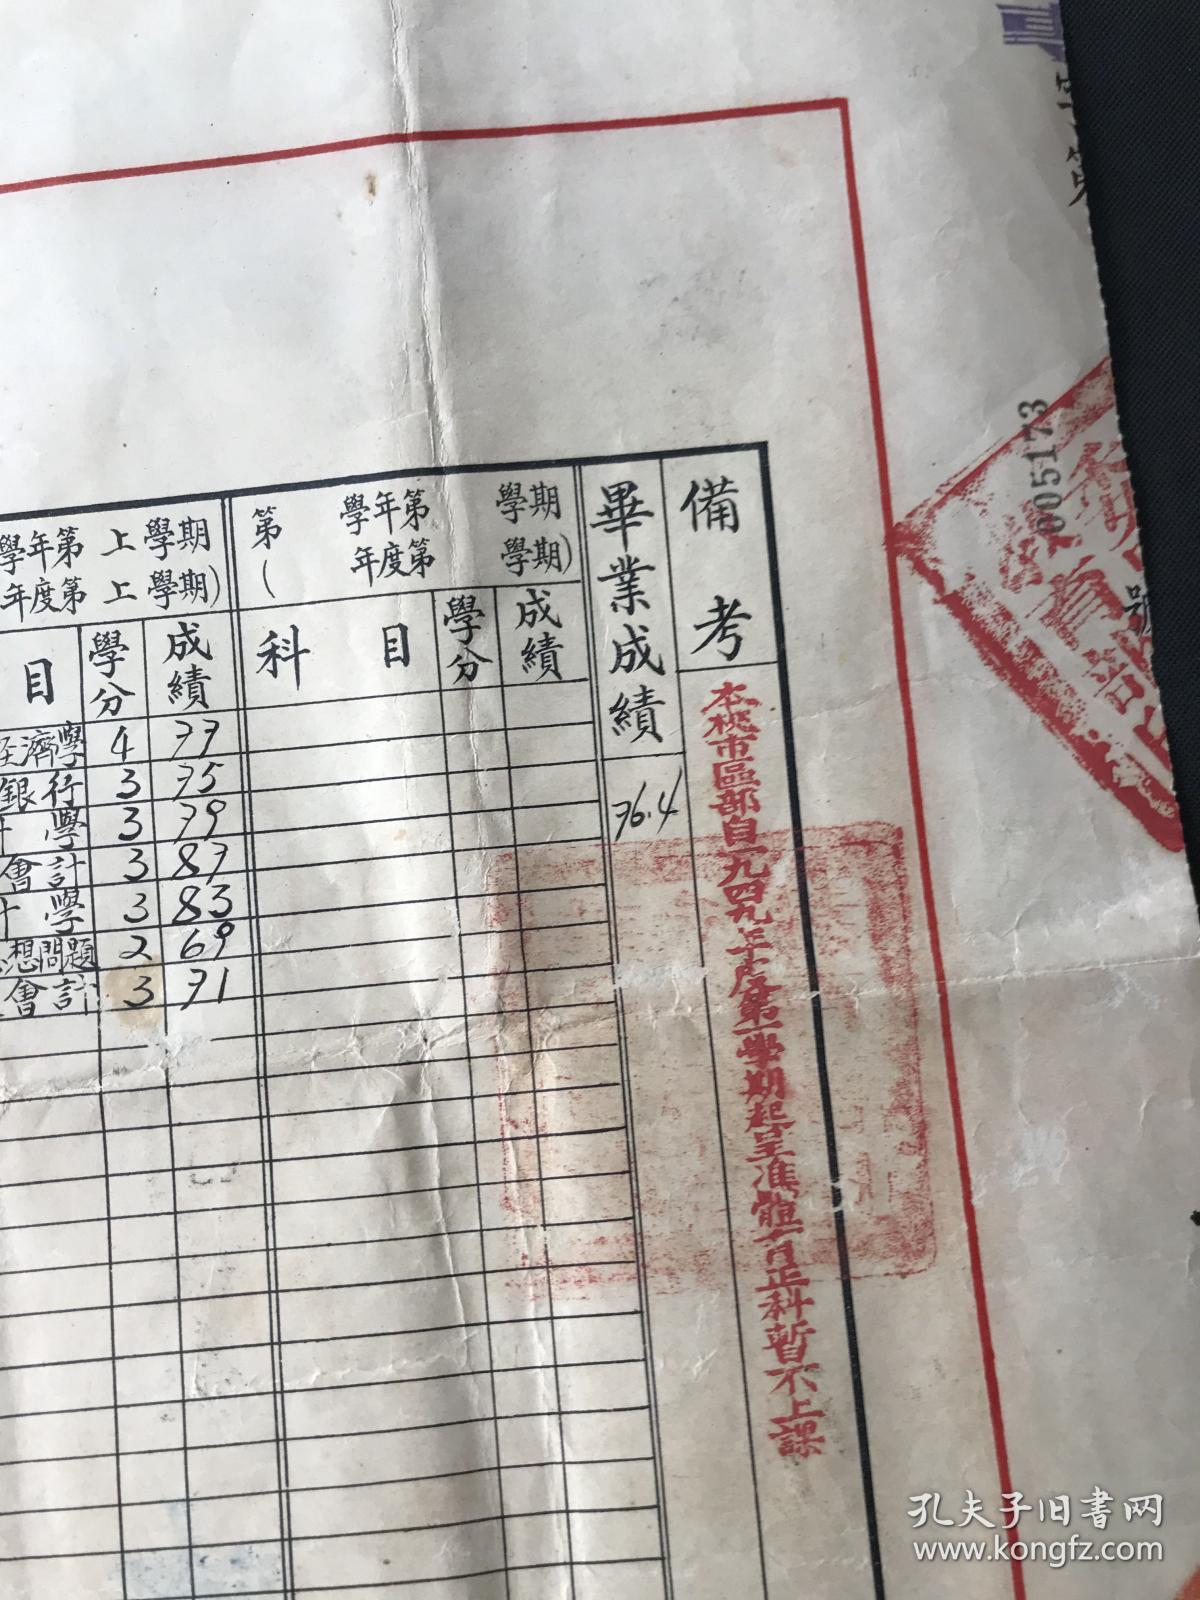 字第
005173
號
備考
本校市區部自一九四九年度第一學期起呈准體育正科暫不上課
畢業成績
76.4
第 學年第 學期
( 年度第 學期)
科目 學分 成績
學年第上學期
年度第上學期)
目 學分 成績
濟學 4 77
銀行 3 75
學 3 79
會計 3 87
學 3 83
想問題 2 69
會計 3 71
孔夫子旧书网
www.kongfz.com